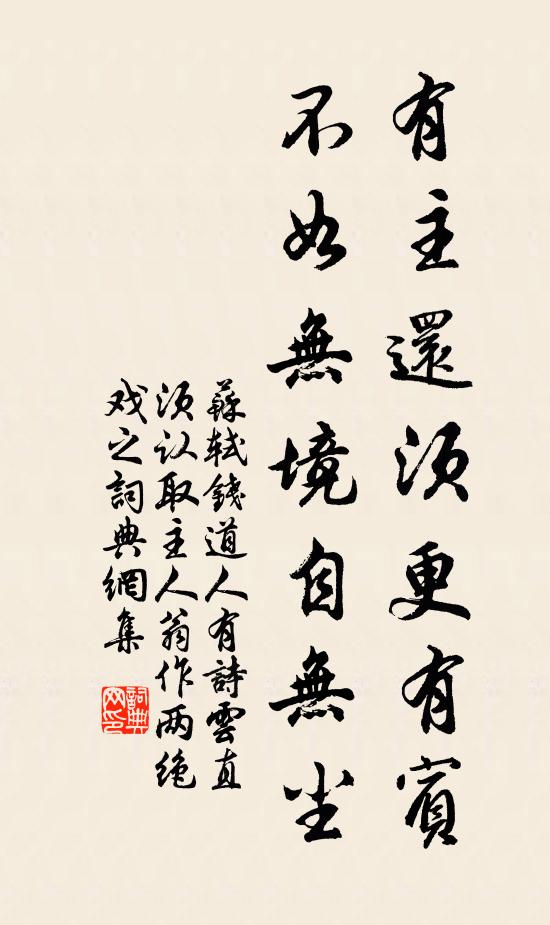 有主還須更有賓
不如無境自無尘
蘇軾錢道人有詩雲直
須认取主人翁作两绝
戏之詞典網集
詞典
网印